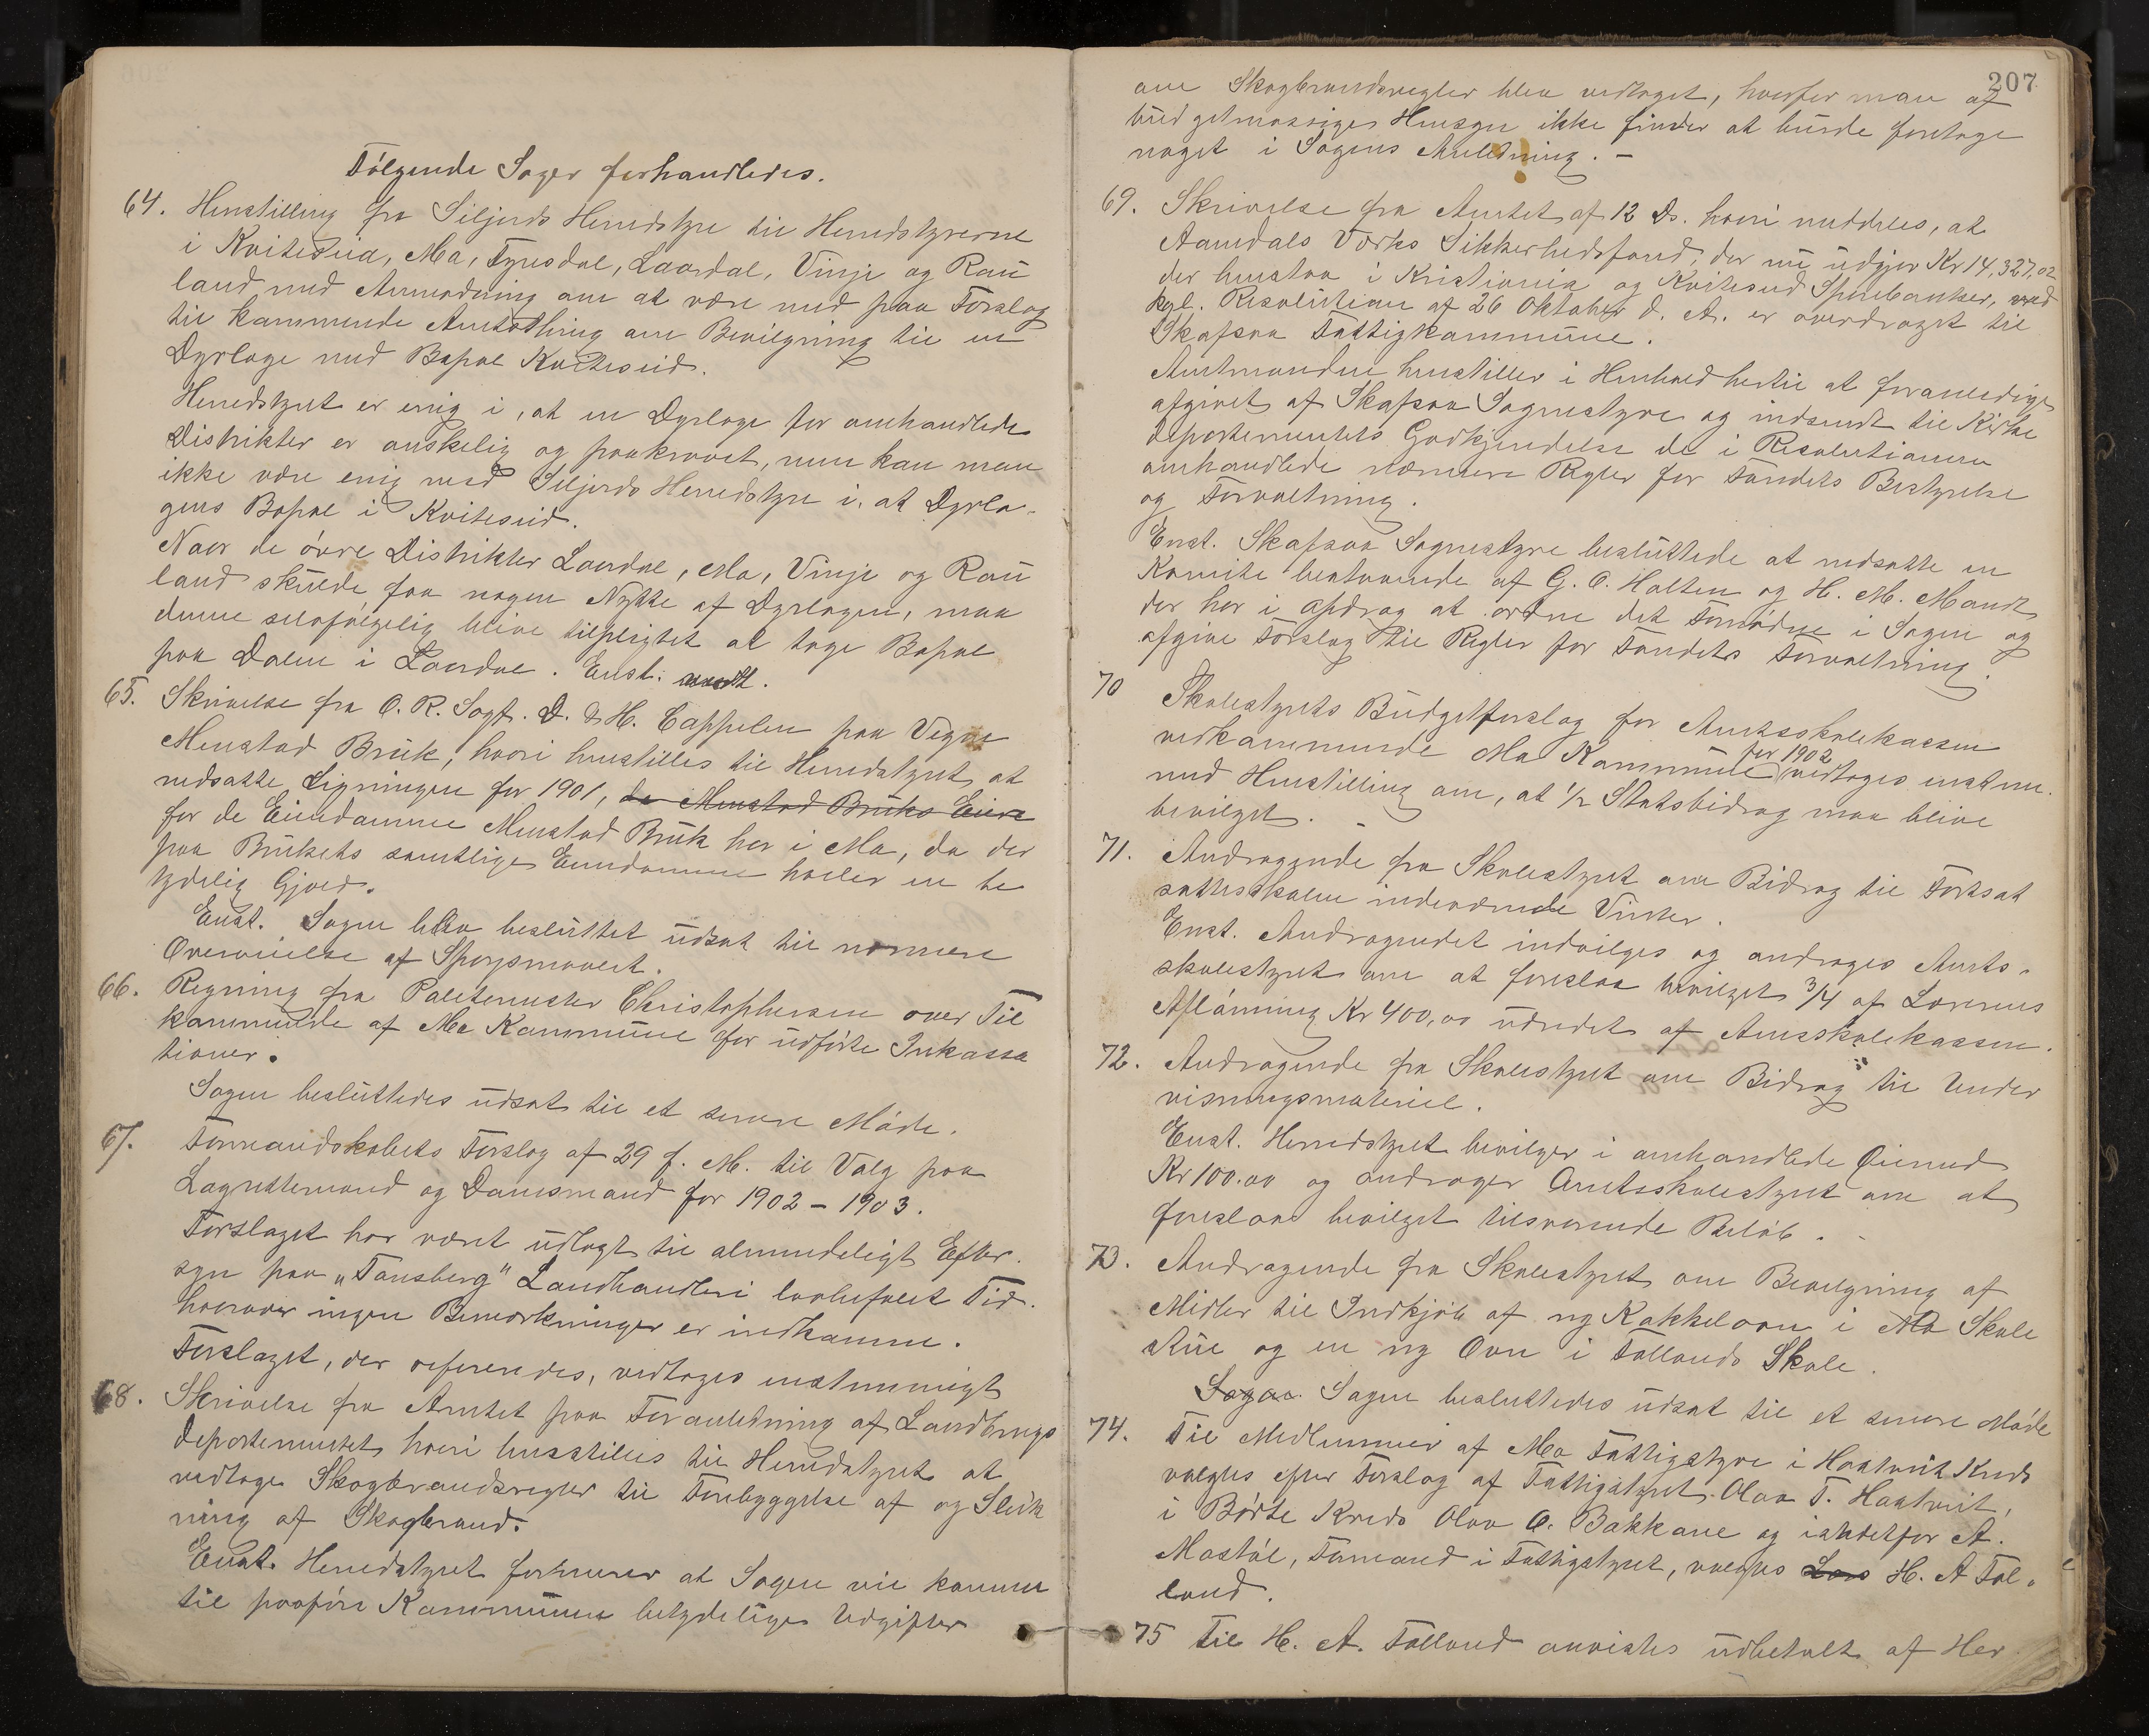 Følgende Sager forhandledes.
64. Henstilling fra Siljords Herredstyre til Herredstyrerne
i Kviteseid, Mo, Tyrisdal, Laardal, Vinje og Rau
land med Anmodning om at være med paa Forslag
til kommende Amtsthing om Bevilgning til en
Dyrlæge med Bopæl Kviteseid.
Herredstyret er enig i, at en Dyrlæge for omhandlede
Distrikter er ønskelig og paakrævet, men kan man
ikke være enig med Siljords Herredstyre i, at Dyrlæ-
gens Bopæl i Kviteseid.
Naar de øvre Distrikter Laardal, Mo, Vinje og Rau
land skulde faa nogen Nytte af Dyrlægen, maa
denne selvfølgelig blive tilpligtet at tage Bopæl
paa Dalen i Laardal. Enst. vedt.
65. Skrivelse fra O. R. Sagf. D. & H. Cappelen paa Vegne
Menstad Brug, hvori henstilles til Herredstyret at
nedsætte Ligningen for 1901, da Menstad Bruks Eiere
for de Eiendomme Menstad Bruk har i Mo, da der
paa Brukets samtlige Eiendomme hviler en be
tydelig Gjæld.
Enst. Sagen blev besluttet udsat til nærmere
Overveielse af Spørgsmaalet.
66. Regning fra Politimester Christophersen over Til
kommende af Mo Kommune for udførte Inkassa
tioner.
Sagen besluttedes udsat til et senere Møde.
67. Formandskabets Forslag af 29 f. M. til Valg paa
Lagrettemænd og Domsmænd for 1902 – 1903.
Forslaget har været udlagt til almindeligt Efter-
syn paa „Tønsberg" Landhandleri lovbefalet Tid.
hvorover ingen Bemærkninger er indkomne.
Forslaget, der refereredes, vedtoges enstemmigt
68. Skrivelse fra Amtet paa Foranledning af Landbrugs
departementet hvori henstilles til Herredstyret at
vedtage Skogbrandsregler til Forebyggelse af og Sluk
ning af Skogbrand.
Enst. Herredstyret formener at Sagen vil komme
til paaføre Kommunen betydelige Udgifter
207
om Skogbrandsregler blev vedtaget, hvorfor man af
budgetmæssige Hensyn ikke finder at burde foretage
noget i Sagens Anledning. –
69. Skrivelse fra Amtet af 12 Ds. hvori meddeles, at
Aamdals Værks Sikkerhedsfond, der nu udgjør Kr 14,327,02
der henstaa i Kristiania og Kviteseid Sparebanker, ved
kgl. Resolution af 26 Oktober d. A. er overdraget til
Skafsaa Fattigkommune.
Amtmanden henstiller i Henhold hertil at foranledige
afgivet af Skafsaa Sognestyre og indsendt til Kirke
departementets Godkjendelse de i Resolutionen
omhandlede nærmere Regler for Fondets Bestyrelse
og Forvaltning.
Enst. Skafsaa Sognestyre besluttede at nedsætte en
Komite bestaaende af G. O. Holten og H. M. Mandt
der har i Opdrag at ordne det Fornødne i Sagen og
afgive Forslag til Regler for Fondets Forvaltning.
70 Skolestyrets Budgetforslag for Amtsskolekassen
for 1902
vedkommende Mo Kommune vedtoges enstem.
med Henstilling om, at ½ Statsbidrag maa blive
bevilget. –
71. Andragende fra Skolestyret om Bidrag til Fortsæt
sættelsesskolen indeværende Vinter.
Enst. Andragendet indvilges og andrages Amts-
skolestyret om at foreslaa bevilget 3/4 af Lærerens
Aflønning Kr 400,00 udredet af Amsskolekassen.
72. Andragende fra Skolestyret om Bidrag til Under
visningsmateriel.
Enst. Herredstyret bevilger i omhandlede Øiemed
Kr 100.00 og andrager Amtsskolestyret om at
foreslaa bevilget tilsvarende Beløb.
73. Andragende fra Skolestyret om Bevilgning af
Midler til Indkjøb af ny Kakkelovn i Mo Skole
stue og en ny Ovn i Follands Skole.
Sagen. Sagen besluttedes udsat til et senere Møde
74. Til Medlemmer af Mo Fattigstyre i Haatveit Kreds
valgtes efter Forslag af Fattigstyret. Olav T. Haatveit,
i Børte Kreds Olav O. Bakkane og istedetfor A.
Mostøl, Formand i Fattigstyret, valgtes Lars H. A Fol-
land.
75 Til H. A. Folland anvistes udbetalt af Her